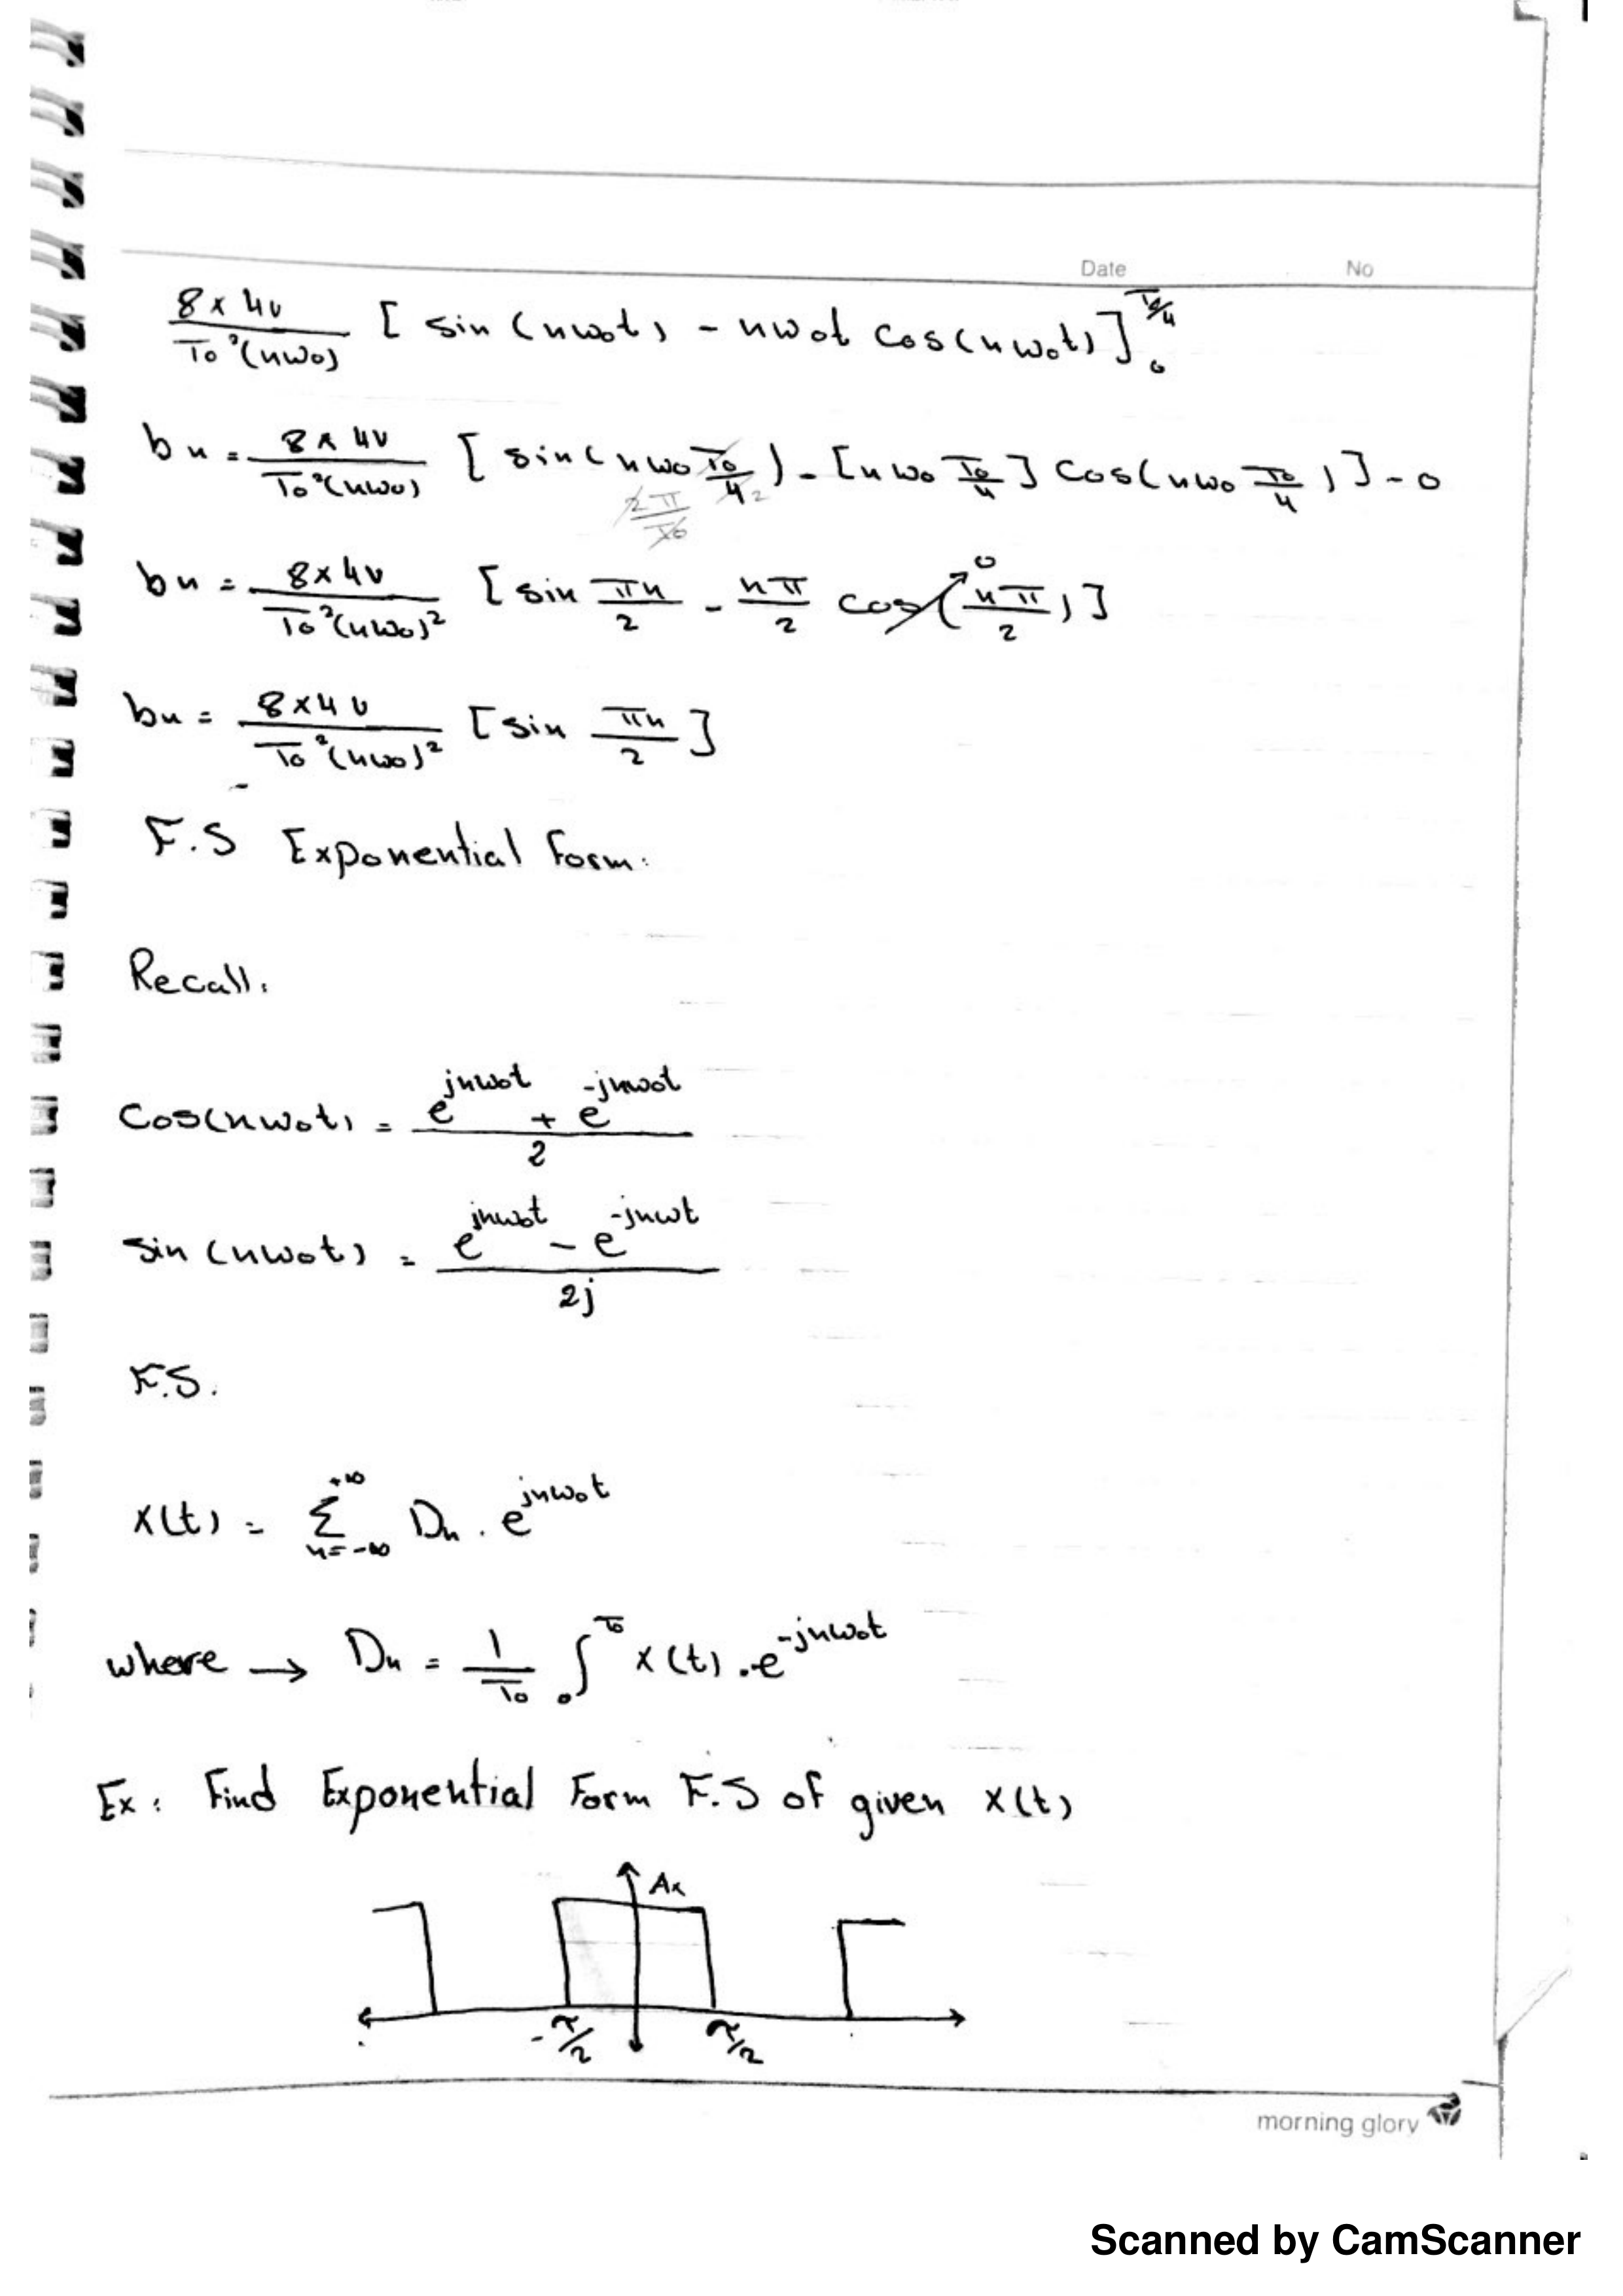 Date No
8 x 4v / To²(nωo) [ sin (nωot) - nωot cos(nωot) ] To/4 0
bn = 8 x 4v / To²(nωo) [ sin( nωo To/4 2 ) - [nωo To/4 ] cos(nωo To/4 ) ] - 0
2π / To
bn = 8x4v / To²(nωo)² [ sin πn/2 - nπ/2 cos( nπ/2 ) ] 0
bn = 8x4v / To²(nωo)² [ sin πn/2 ]
F.S Exponential Form:
Recall:
Cos(nωot) = e^jnωot + e^-jnωot / 2
Sin (nωot) = e^jnωot - e^-jnωt / 2j
F.S.
x(t) = Σ +∞ n=-∞ Dn . e^jnωot
where → Dn = 1/To ∫ To 0 x(t) . e^-jnωot
Ex: Find Exponential Form F.S of given x(t)
Ax
-τ/2 τ/2
morning glory
Scanned by CamScanner